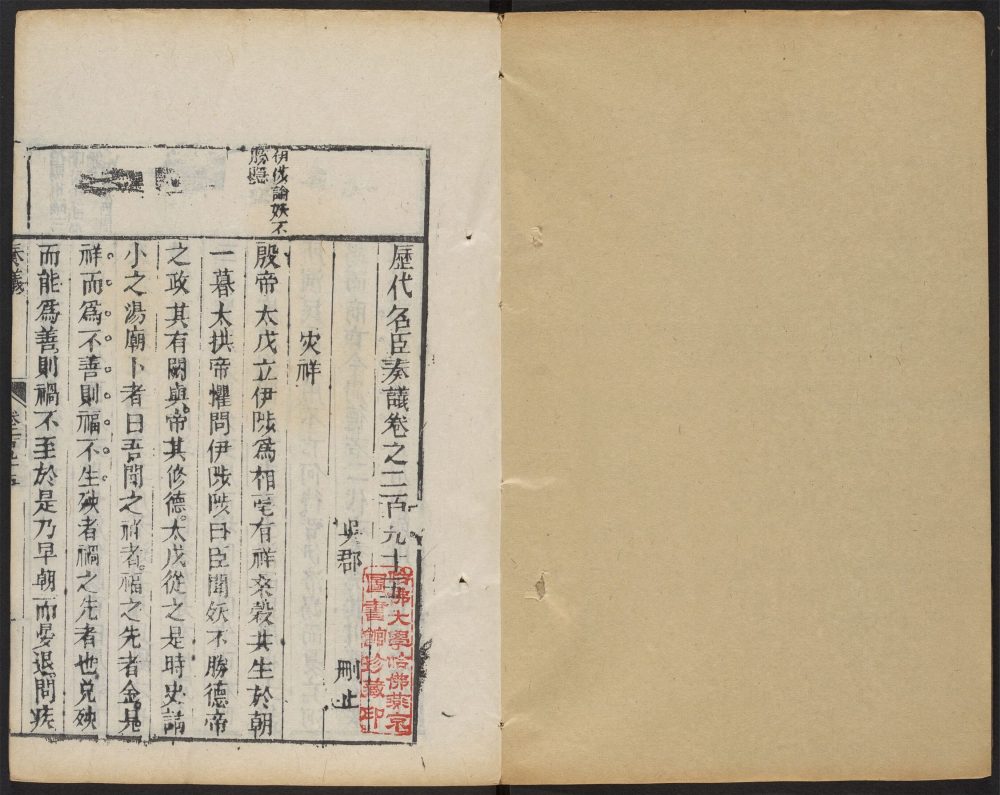 歷代名臣奏議卷之二百九十五
吳郡 刪止
災祥
殷帝太戊立伊陟爲相亳有祥桑榖共生於朝
一暮大拱帝懼問伊陟陟曰臣聞妖不勝德帝
之政其有闕與帝其修德太戊從之是時史請
小之湯廟卜者曰吾聞之祥者福之先者金見
祥而爲不善則福不生殃者禍之先者也見殃
而能爲善則禍不至於是乃早朝而晏退問疾
伊陟論妖不
勝德
奏議
卷二百九十五
哈佛大學哈佛燕京
圖書館珍藏印